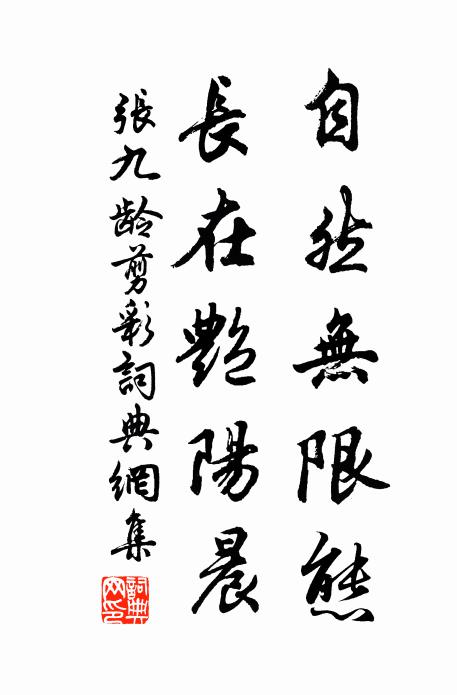 自然無限態
長在艷陽晨
張九齡剪彩詞典網集
詞典網印